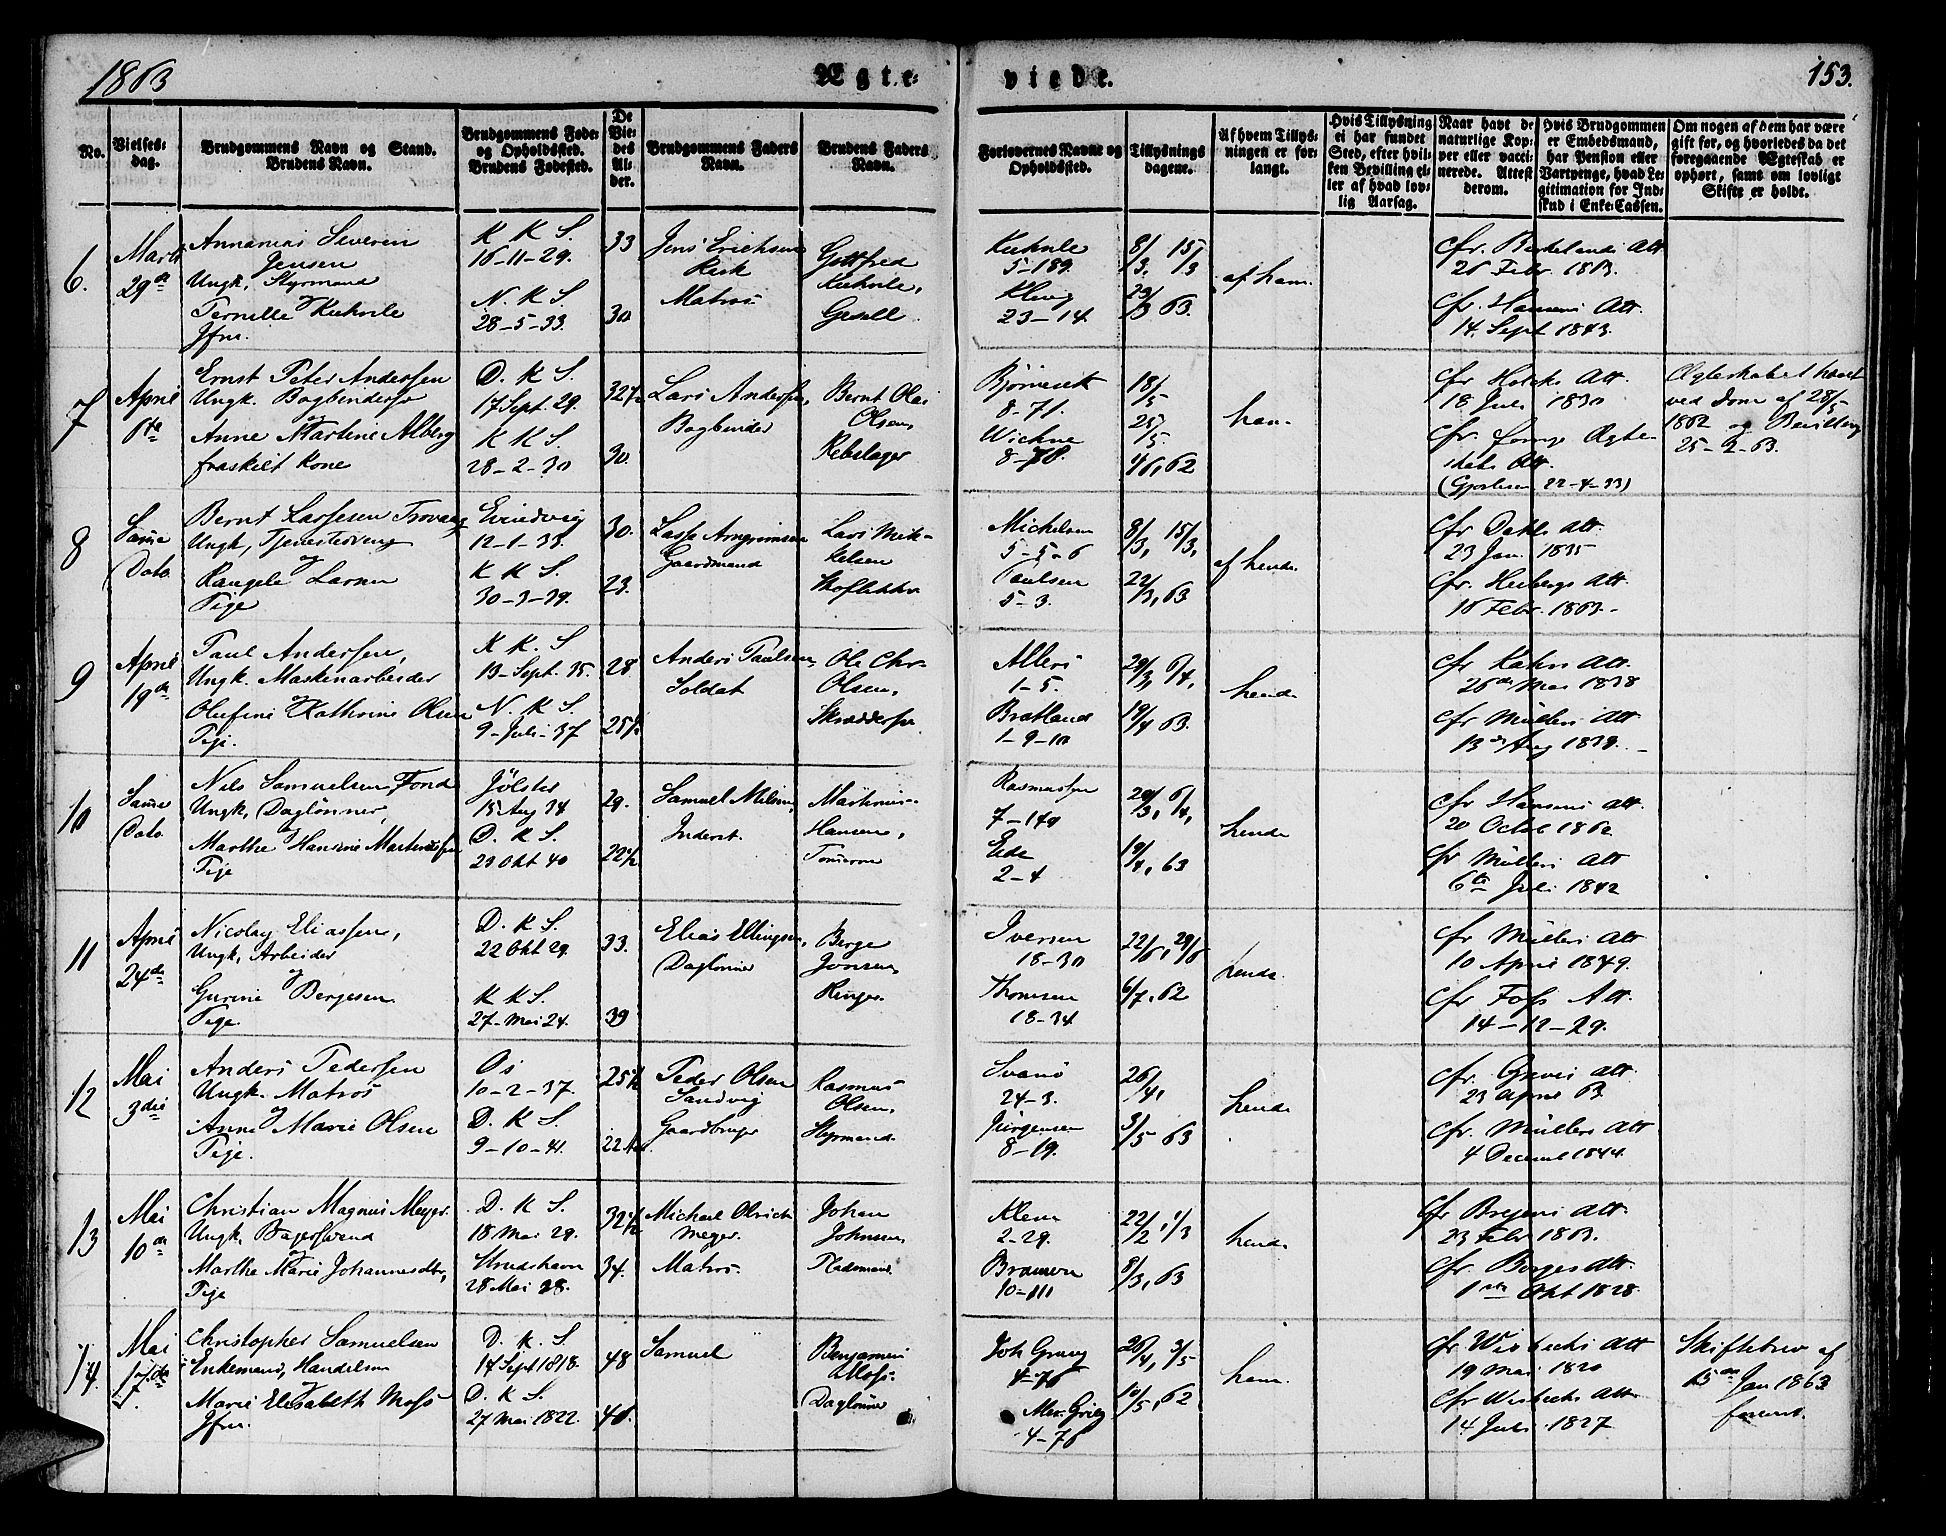 1863
Ægte-
viede.
153.
No.
Vielses-
dag.
Brudgommens Navn og Stand.
Brudens Navn.
Brudgommens Føde-
og Opholdssted.
Brudens Fødested.
De
Vie-
des
Al-
der.
Brudgommens Faders
Navn.
Brudens Faders
Navn.
Forlovernes Navne og
Opholdssted.
Tillysnings
dagene.
Af hvem Tillys-
ningen er for-
langt.
Hvis Tillysning
ei har fundet
Sted, efter hvil-
ken Bevilling el-
ler af hvad lov-
lig Aarsag.
Naar havt de
naturlige Kop-
per eller vacci-
nerede. Attest
derom.
Hvis Brudgommen
er Embedsmand,
har Pension eller
Vartpenge, hvad Le-
gitimation for Ind-
skud i Enke-Cassen.
Om nogen af dem har være
gift før, og hvorledes da det
foregaaende Ægteskab er
ophørt, samt om lovligt
Skifte er holdt.
6.
Marts
29de
Annanias Severin
Jensen
Ungk, Styrmand
og
Pernille Kuhnle
Jfru.
K K S.
16-11-29.
N. K S.
28-5-33.
33
30
Jens Erichsen
Kirk
Matros
Gottfred
Kuhnle,
Gesell.
Kuhnle
5-189.
23-14.
8/3. 15/3
29/3 63.
af ham.
cfr. Birkelands Att
26 Febr 1863.
cfr. Hansens Att.
14. Sept 1843.
7
April
6te
Ernst Peter Andersen
Ungk. Bogbindersv
og
Anne Martine Alberg
fraskilt Kone
D. K S.
17 Sept. 29.
K K S.
28-2-30
32½
30.
Lars Andersen,
Bogbinder
Bernt Olai
Olsen,
Rebslager
8-71.
Wichne
8-78.
18/5
25/5.
1/6, 62
ham.
cfr Holcks Att.
18 Juli 1830
Att.
22-4-33)
Ægteskabet hævet
ved Dom af 28/5
1862 og Bevilling
25-2-63.
8
Samme
Dato.
Bernt Lassesen
Ungk, Tjenestedreng
og
Larsen
Pige
Evindvig
12-1-33.
K K S.
30-3-39.
30.
23.
Lasse Arngrimsen
Gaardmand
Lars Mik-
kelsen
Michelsen
5-5-6
Paulsen
5-3.
8/3, 15/3,
22/3, 63
af hende.
cfr Dahls Att.
23 Jan. 1835
cfr. Heibergs Att.
16 Febr. 1863.-
9
April
19de
Paul Andersen,
Ungk. Maskinarbeider
og
Olufine Kathrine Olsen
Pige.
K K. S
13-Sept. 35.
N. K S.
9-Juli-37
28
25½
Anders Paulsen,
Soldat
Ole Chr.
Olsen,
Skræddersv
Albers
1-5.
Bratland
1-9-10
29/3, 6/4,
19/4 63.
hende
cfr Kahrs Att.
26de Mai 1838
cfr Müllers Att
13de Aug 1839.-
10
Samme
Dato.
Nils Samuelsen, Fond
Ungk, Daglønner,
og
Marthe Hansine Martinussen
Pige
Jølster
15 Aug 34
D. K S.
20 Okt 40
29.
22½
Samuel Nilsen,
Inderst.
Martinus
Hansen,
Rasmussen
7-140
Eide
2-4
29/3, 6/4,
19/4, 63
hende
cfr Hansens Att.
20 Octob 1862
cfr Müllers Att
6te Juli 1842
11
April
24de
Nicolay Eliassen,
Ungk, Arbeider
og
Gurine Bergesen
Pige
D. K S.
22 Okt 29.
K K S.
27-Mai 24.
33.
39
Elias Ellingsen,
Daglønner
Berge
Jonsen
Iversen
18-30
Thomsen
18-34
22/6, 29/6
6/7, 62
hende
cfr Müllers Att
10 April 1849.
cfr Foss Att.
14-12-29.
12
Mai
3die
Anders Pedersen
Ungk. Matros
og
Anne Marie Olsen
Pige.
Os
10-2-37.
D. K S.
9-10-41.
25½
Peder Olsen
Sandvig
Gaardbruger
Rasmus
Olsen,
Styrmand
Svanø
24-3.
Jürgensen
8-19.
26/4,
3/5 63
hende
cfr. Greves Att.
23 April 63
cfr. Müllers Att
4 Decemb 1844.
13
Mai
10de
Christian Magnus Meyer.
Ungk, Bagersvend
og
Marthe Marie Johannesdtr,
Pige
D. K S.
18 Mai 29.
28 Mai 28.
32½
34.
Michael Olrich
Meyer.
Matros.
Johan
Johnsen
Pladsmand
Klem
2-29.
10-111
22/2, 1/3
8/3, 63
hende
23 Febr 1863.
cfr. Borges Att.
Okt 1828.
14.
Mai
17de
Christopher Samuelsen
Enkemand, Handelsm
og
Marie Elisabeth Moss
Jfru.
D. K. S
14 Sept 1818.
D. K S.
27 Mai 1822.
48
40.
Samuel
Benjamin
Moss.
Dagløner
Joh Grieg
4-76
Grieg
4-76
26/4, 3/5
10/5, 62
ham.
cfr Wisbechs Att
19 Mai 1820
cfr Wisbechs Att.
14 Juli 1827
Skiftebrev af
15de Jan 1863
forevist.